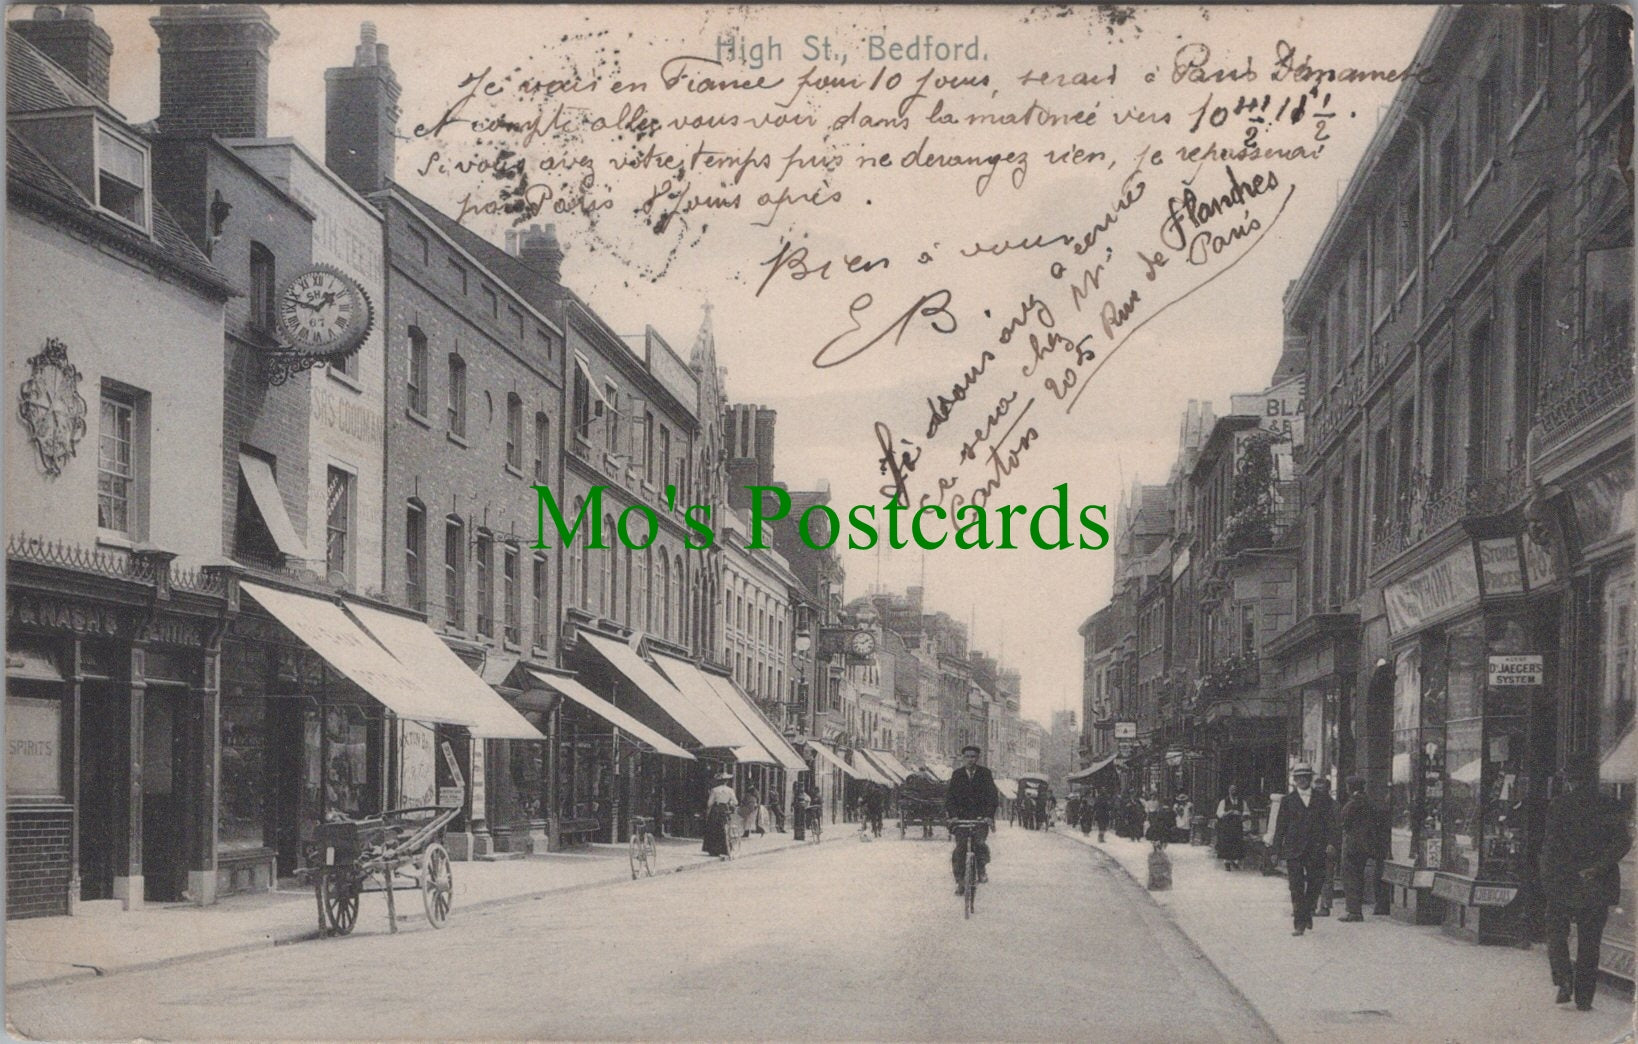 High St., Bedford.
Je vais en France pour 10 jours, serais à Paris
et compte aller vous voir dans la matinée vers 10 1/2 11 1/2.
Si vous avez votre temps puis ne derangez rien, je repasserai
par Paris 8 jours après.
Bien à vous
E B.
si vous avez à
ce sera chez
Cartons 205 Rue de Flandres
Paris
Mo's Postcards
SH
67
TEETH
GOODMAN
NASH &
SPIRITS
BLA
STORE
PRICES
DR. JAEGER'S
SYSTEM